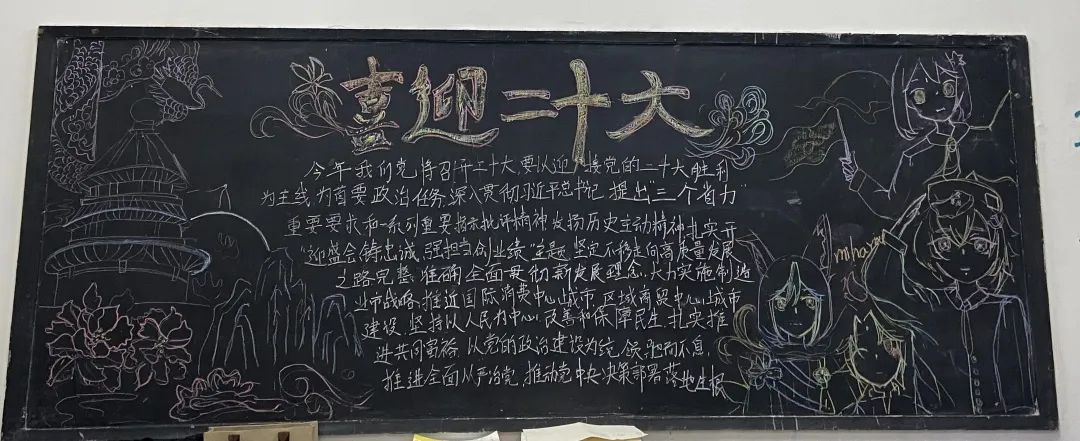 喜迎二十大
今年我们党将召开二十大,要以迎接党的二十大胜利
为主线,为首要政治任务,深入贯彻习近平总书记提出"三个
重要要求和一系列重要指示批评精神发扬历史主动精神扎实开
"迎盛会铸忠诚,强担当创业绩"主题,坚定不移走向高质量发展
之路完整、准确全面贯彻新发展理念,大力实施制造
业市战略,推近国际消费中心城市,区域商贸中心城市
建设,坚持以人民为中心,改善和保障民生,扎实推
进共同富裕,以党的政治建设为统领,驰而不息,
推进全面从严治党,推动党中央决策部署落地生根